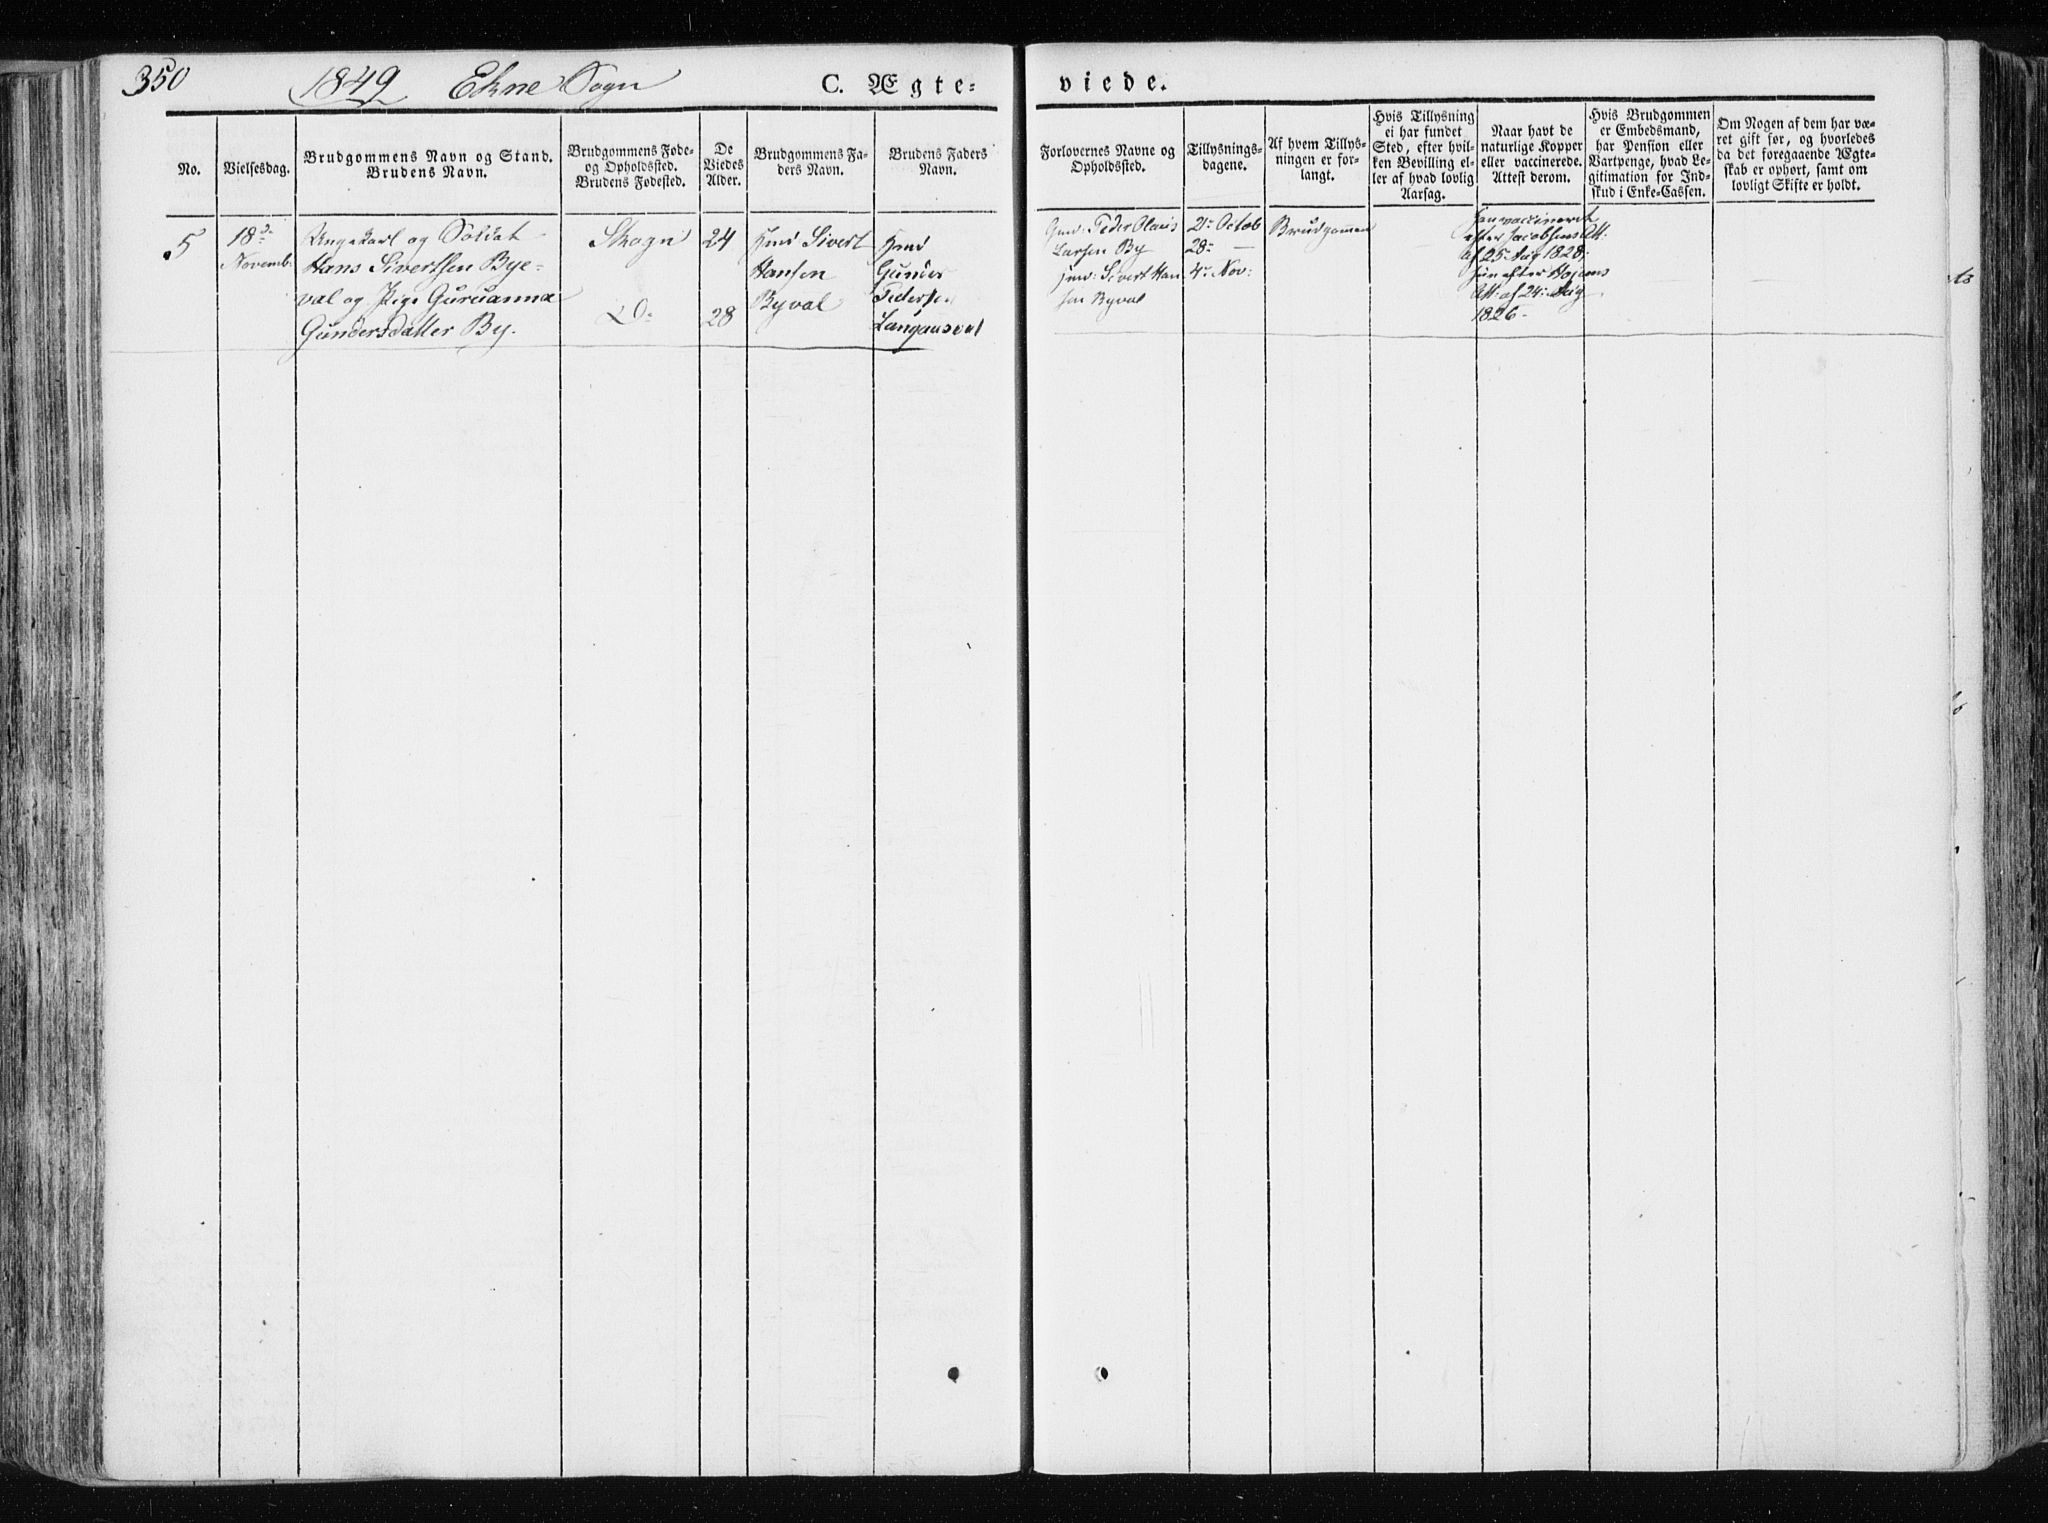 350
1849 Ekne Sogn
C. Ægte-
viede.
No.
Vielsesdag.
Brudgommens Navn og Stand.
Brudens Navn.
Brudgommens Føde-
og Opholdssted.
Brudens Fødested.
De
Viedes
Alder.
Brudgommens Fa-
ders Navn.
Brudens Faders
Navn.
Forlovernes Navne og
Opholdssted.
Tillysnings-
dagene.
Af hvem Tillys-
ningen er for-
langt.
Hvis Tillysning
ei har fundet
Sted, efter hvil-
ken Bevilling el-
ler af hvad lovlig
Aarsag.
Naar havt de
naturlige Kopper
eller vaccinerede.
Attest derom.
Hvis Brudgommen
er Embedsmand,
har Pension eller
Vartpenge, hvad Le-
gitimation for Ind-
skud i Enke-Cassen.
Om Nogen af dem har væ-
ret gift før, og hvorledes
da det foregaaende Ægte-
skab er ophørt, samt om
lovligt Skifte er holdt.
5
18de
Novemb.
Ungekarl og Soldat
Hans Sivertsen Bye-
val og Pige Guruanna
Gundersdatter By.
Skogn
Do
24
28
Hmd Sivert
Hansen
Byval
Hmd
Gunder
Pedersen
Langaasval
Gmd: Peder Olaus
Larsen By
Hmd: Sivert Han
sen Byval
21: Octob
28: —
4de Nov:
Brudgomen
Han vaccineret
efter Jacobsens Att:
af 25 Aug 1828.
Hun efter Hojems
Att: af 24: Aug
1826.